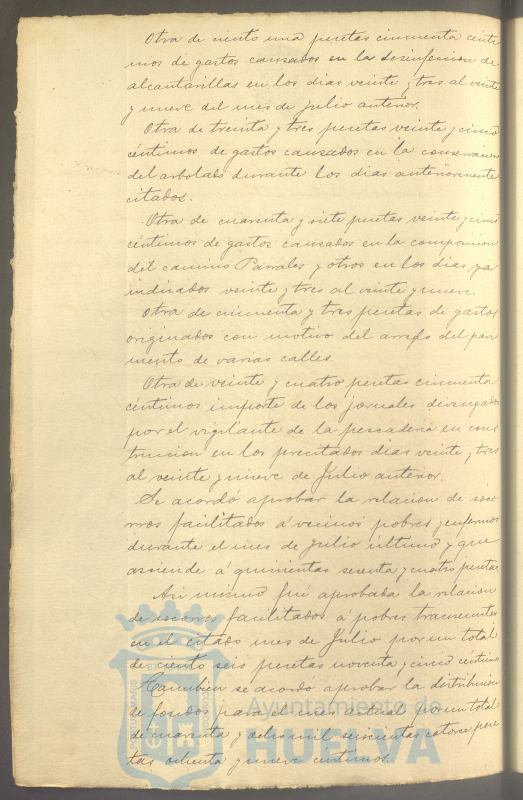 Otra de ciento una pesetas cincuenta centi
mos de gastos causados en la desinfeccion de
alcantarillas en los dias veinte y tres al veinte
y nueve del mes de Julio anterior.
Otra de treinta y tres pesetas veinte y cinco
céntimos de gastos causados en la conservacion
del arbolado durante los dias anteriormente
citados.
Otra de cuarenta y siete pesetas veinte y cinco
céntimos de gastos causados en la composicion
del camino Parrales y otros en los dias ya
indicados veinte y tres al veinte y nueve
Otra de cincuenta y tres pesetas de gastos
originados con motivo del arreglo del pavi
mento de varias calles.
Otra de veinte y cuatro pesetas cincuenta
céntimos importe de los jornales devengados
por el vigilante de la pescaderia en cons
truccion en los precitados dias veinte y tres
al veinte y nueve de Julio anterior.
Se acordó aprobar la relacion de soco
rros facilitados á vecinos pobres y enfermos
durante el mes de Julio último y que
asciende á quinientas sesenta y cuatro pesetas
Asi mismo fué aprobada la relacion
de socorros facilitados á pobres transeuntes
en el citado mes de Julio por un total
de ciento seis pesetas noventa y cinco céntimos
Tambien se acordó aprobar la distribucion
de fondos para el mes actual por un total
de cuarenta y ocho mil seiscientas catorce pese
tas ochenta y nueve céntimos.
Ayuntamiento de
HUELVA